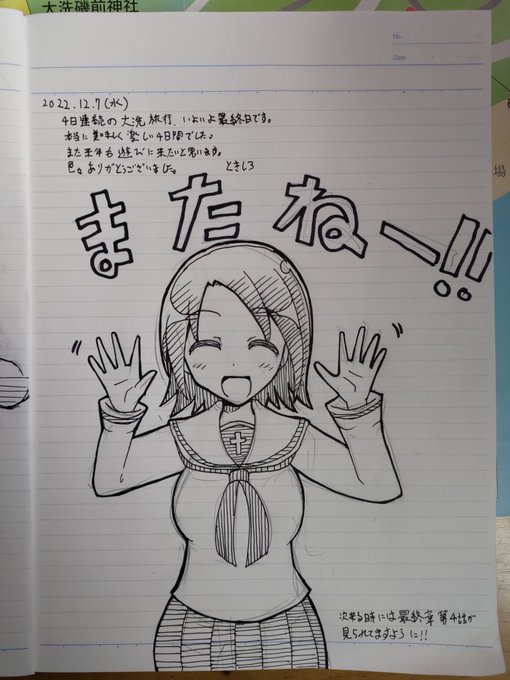 大洗磯前神社
No.
Date
2022.12.7(水)
4日連続の大洗旅行、いよいよ最終日です。
本当に美味しく楽しい4日間でした。
また来年も遊びに来たいと思います。
色々ありがとうございました。 ときしろ
またねー!!
場
次来る時には最終章第4話が
見られてますように!!